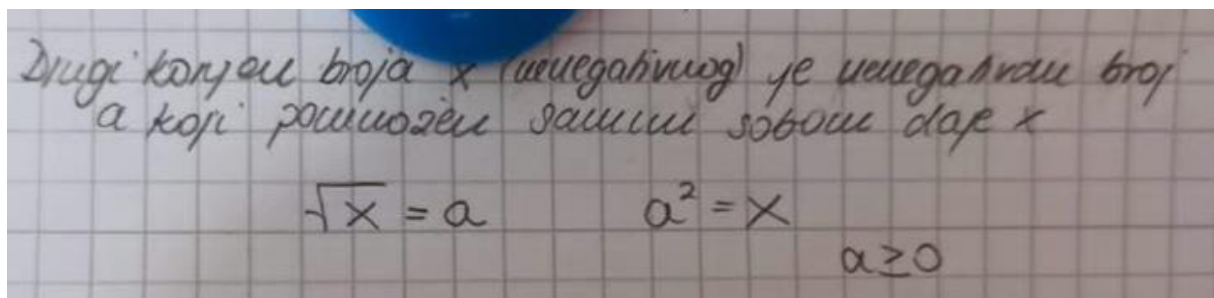 Drugi korjen broja x (nenegativnog) je nenegativan broj
a koji pomnožen samim sobom daje x
√x = a a² = x
a ≥ 0